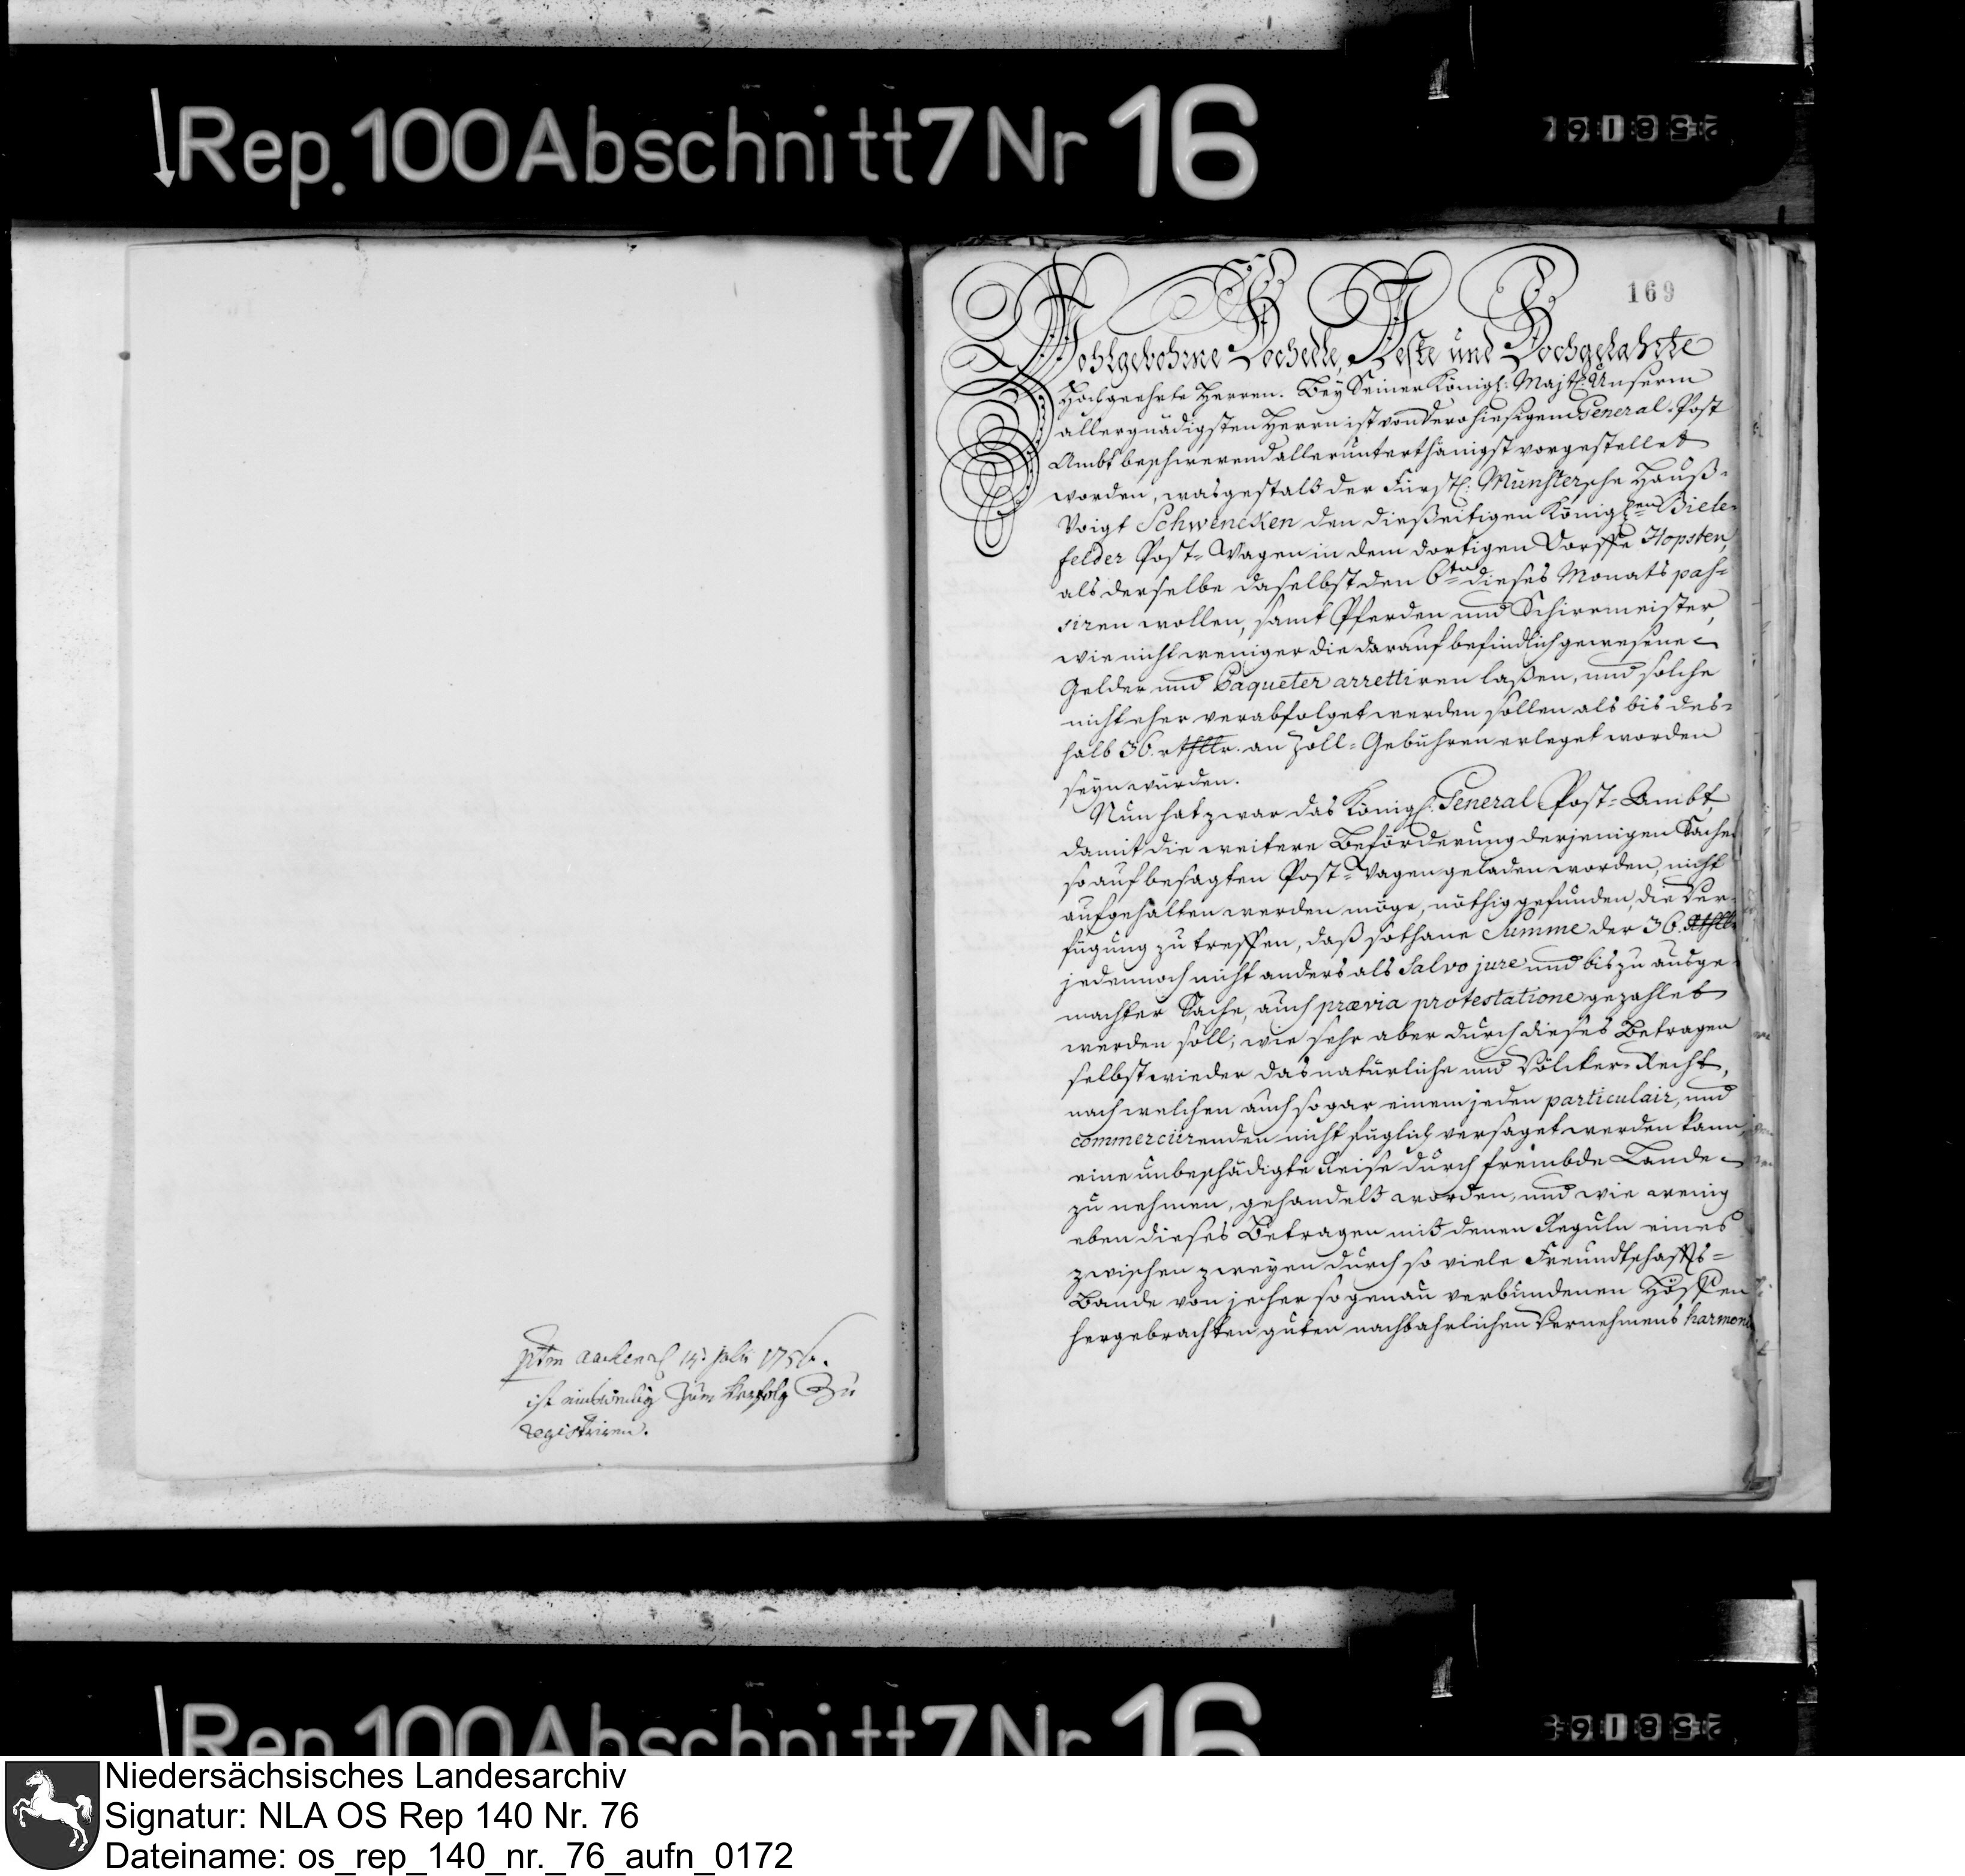 Rep. 100 Abschnitt 7 Nr 16
ist zum Verfolg zu
registriren.
169
Wohlgebohrne Hochedle, Veste und Hochgelahrte
Hochgeehrte Herren. Bey Seiner Königl: Majtt: Unserm
allergnädigsten Herrn ist von dero hiesigem General-Post
Ambt beschwerend allerunterthänigst vorgestellet
worden, wasgestalt der Fürstl: Münstersche Hauß-
Voigt Schwencken den dießeitigen Königlen Biele-
felder Post-Wagen in dem dortigen Dorffe Hopsten,
als derselbe daselbst den 6ten dieses Monats pas-
siren wollen, samt Pferden und Schirrmeister,
wie nicht weniger die darauf befindlich gewesene
Gelder und Paqueter arrettiren laßen, und solche
nicht eher verabfolget werden sollen als bis des-
halb 36. rthllr. an Zoll-Gebühren erleget worden
seyn würden.
Nun hat zwar das Königl: General Post-Ambt,
damit die weitere Beförderung derjenigen Sachen
so auf besagten Post-Wagen geladen worden, nicht
aufgehalten werden möge, nöthig gefunden, die Ver-
fügung zu treffen, daß sothane Summe der 36. Rthllr
jedennoch nicht anders als salvo jure und bis zu ausge-
machter Sache, auch prævia protestatione gezahlet
werden soll; wie sehr aber durch dieses Betragen
selbst wieder das natürliche und Völcker-Recht,
nach welchen auch sogar einem jeden particulair, und
commerciirenden nicht füglich versaget werden kann,
eine unbeschädigte Reise durch frembde Lande
zu nehmen, gehandelt worden, und wie wenig
eben dieses Betragen mit denen Reguln eines
zwischen zweyen durch so viele Freundschaffts-
Bande von jeher so genau verbundenen Höffen
hergebrachten guten nachbahrlichen Vernehmens harmoni
Rep. 100 Abschnitt 7 Nr 16
Niedersächsisches Landesarchiv
Signatur: NLA OS Rep 140 Nr. 76
Dateiname: os_rep_140_nr._76_aufn_0172